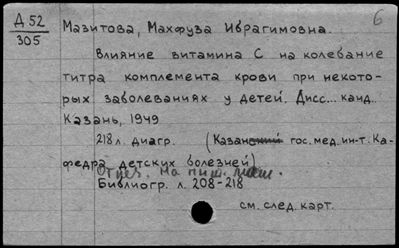 6
Д 52
305
Мазитова, Махфуза Ибрагимовна.
Влияние витамина С на колебание
титра комплемента крови при некото-
рых заболеваниях у детей. Дисс... канд.
Казань, 1949
218 л. диагр. (Казанский гос. мед. ин-т. Ка-
федра детских болезней)
Отпеч. на пиш. маш.
Библиогр. л. 208-218
см. след. карт.